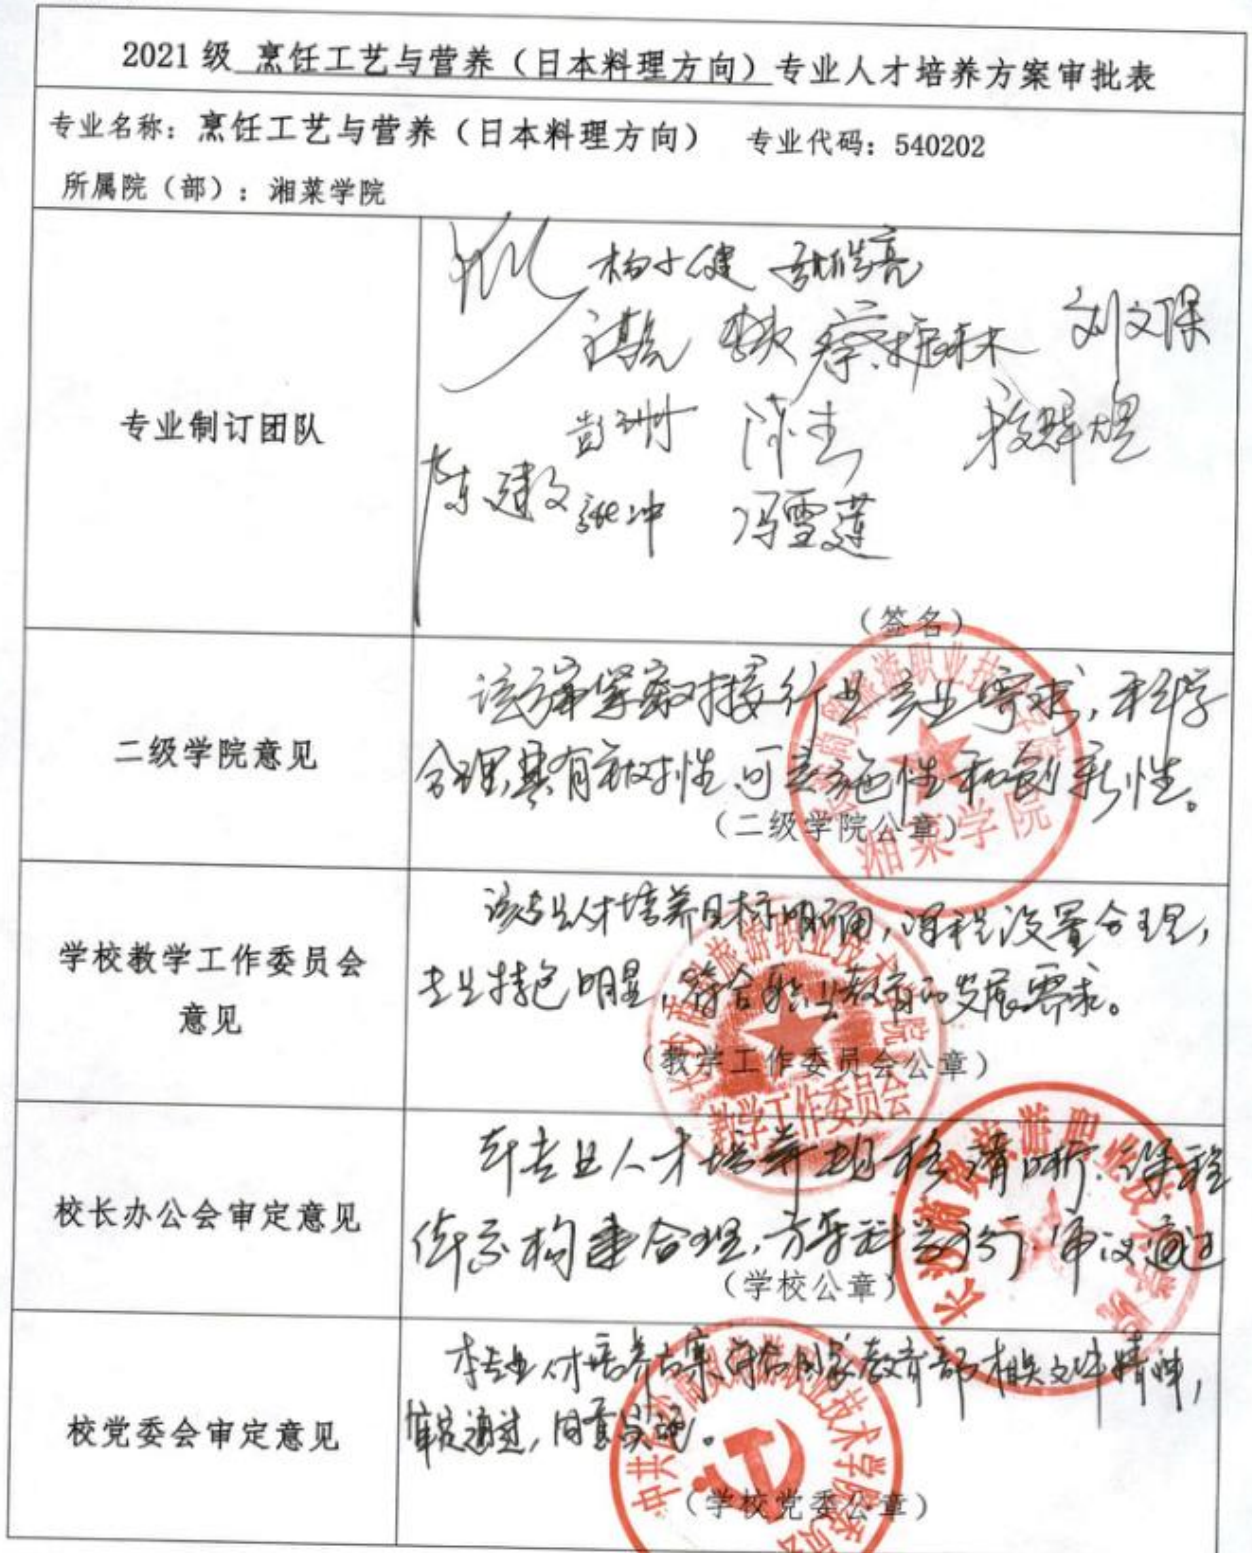 2021级 烹饪工艺与营养（日本料理方向）专业人才培养方案审批表
专业名称：烹饪工艺与营养（日本料理方向） 专业代码：540202
所属院（部）：湘菜学院
专业制订团队
杨小健
蔡振林 刘文保
彭洲
陈建文 张冲 冯雪莲
（签名）
二级学院意见
该方案紧密对接行业产业需求，科学
合理，具有针对性、可实施性和创新性。
（二级学院公章）
长沙商贸旅游职业技术学院
湘菜学院
学校教学工作委员会
意见
该专业人才培养目标明确，课程设置合理，
专业特色明显，符合职业教育的发展需求。
（教学工作委员会公章）
长沙商贸旅游职业技术学院
教学工作委员会
校长办公会审定意见
本专业人才培养规格清晰，课程
体系构建合理，方案科学可行，审议通过
（学校公章）
长沙商贸旅游职业技术学院
校党委会审定意见
本专业人才培养方案符合国家教育部相关文件精神，
审定通过，同意实施。
（学校党委公章）
中共长沙商贸旅游职业技术学院委员会